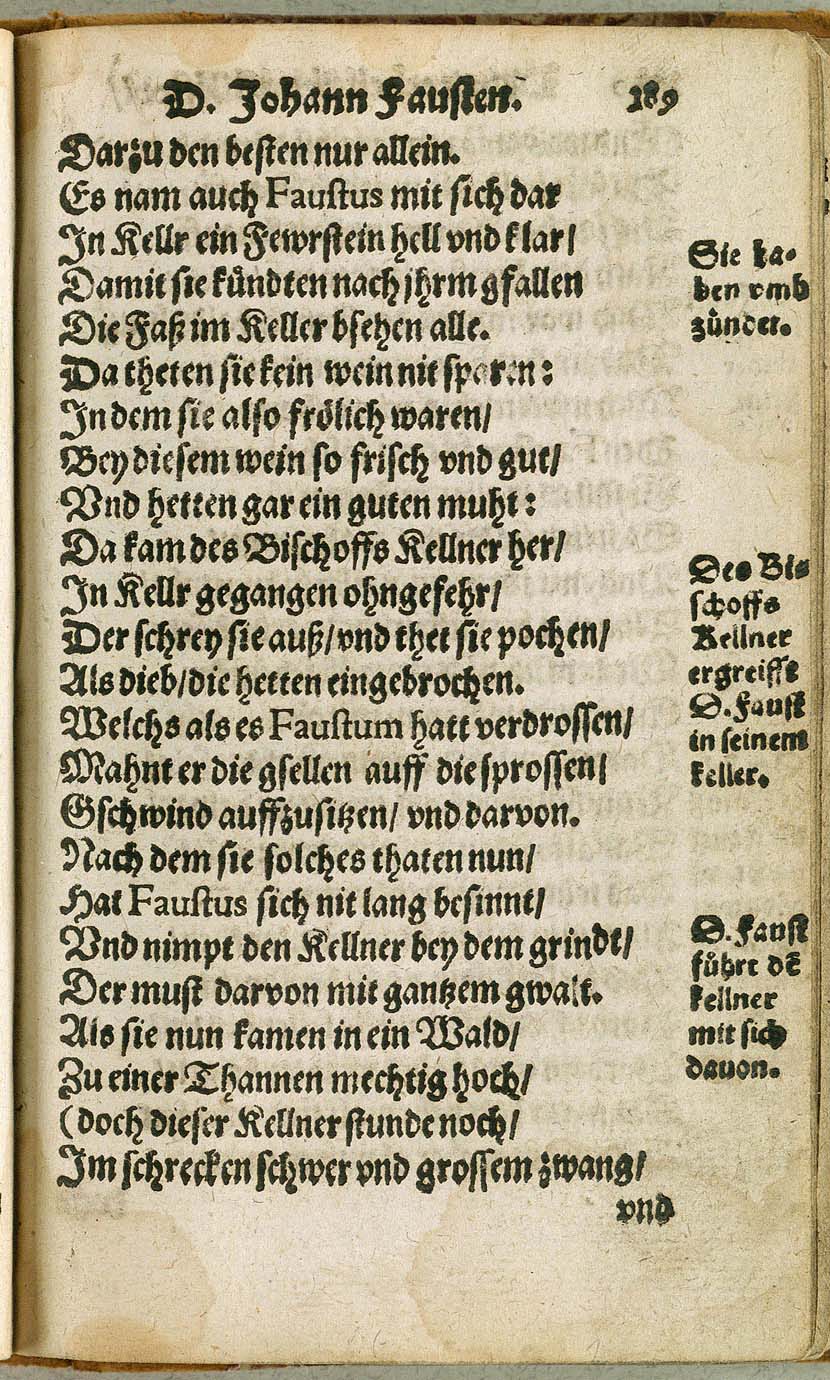 D. Johann Fausten. 189
Darzu den besten nur allein.
Es nam auch Faustus mit sich dar
In Kellr ein Fewrstein hell vnd klar/
Damit sie kündten nach jhrm gfallen
Die Faß im Keller bsehen alle.
Da theten sie kein wein nit sparen:
In dem sie also frölich waren/
Bey diesem wein so frisch vnd gut/
Vnd hetten gar ein guten muht:
Da kam des Bischoffs Kellner her/
In Kellr gegangen ohngefehr/
Der schrey sie auß/vnd thet sie pochen/
Als dieb/die hetten eingebrochen.
Welchs als es Faustum hatt verdrossen/
Mahnt er die gsellen auff die sprossen/
Gschwind auffzusitzen/ vnd darvon.
Nach dem sie solches thaten nun/
Hat Faustus sich nit lang besinnt/
Vnd nimpt den Kellner bey dem grindt/
Der must darvon mit gantzem gwalt.
Als sie nun kamen in ein Wald/
Zu einer Thannen mechtig hoch/
(doch dieser Kellner stunde noch/
Im schrecken schwer vnd grossem zwang/
vnd
Sie ha-
ben vmb
zündet.
Des Bis
schoffs
Kellner
ergreifft
D. Faust
in seinem
keller.
D. Faust
führt dẽ
kellner
mit sich
dauon.